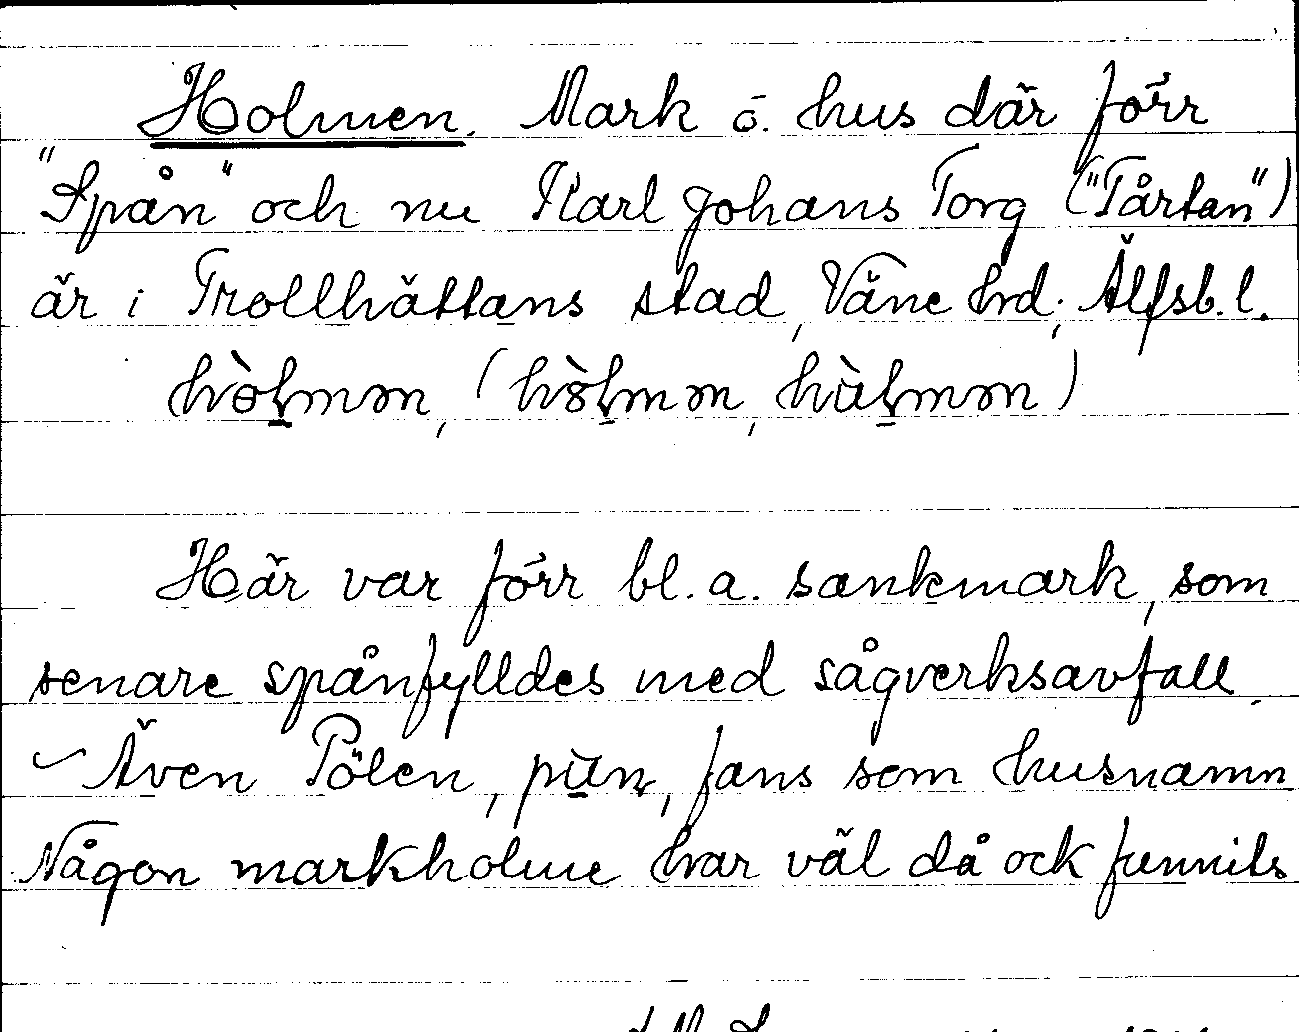 Holmen. Mark o. hus där förr
"Spån" och nu Karl Johans Torg ("Tårtan")
är i Trollhättans stad, Väne hrd; Älfsb. l.
Här var förr bl. a. sankmark, som
senare spånfylldes med sågverksavfall.
Även Pölen, fans som husnamn
Någon markholme har väl då ock funnits